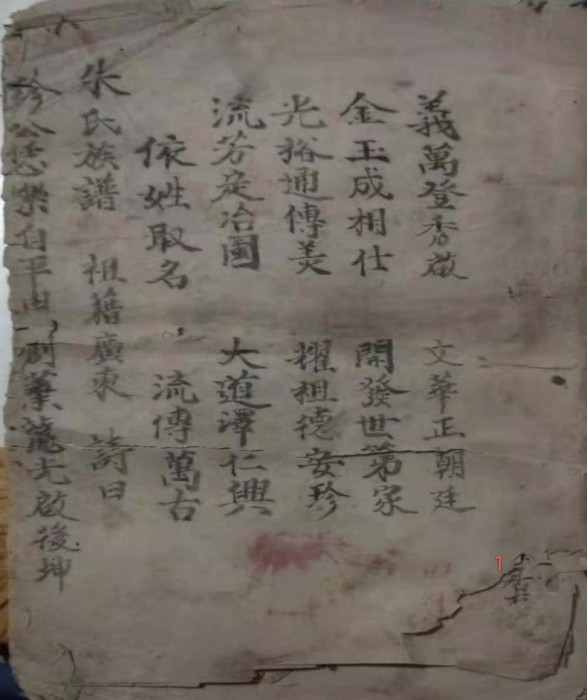 義萬登香啟 文華正朝廷
金玉成相仕 開發世第家
光裕通傳美 耀祖德安珍
流芳定冶國 大道澤仁興
依姓取名 流傳萬古
朱氏族譜 祖籍廣東 詩曰
珍公樂自平由 創業啟後坤
1